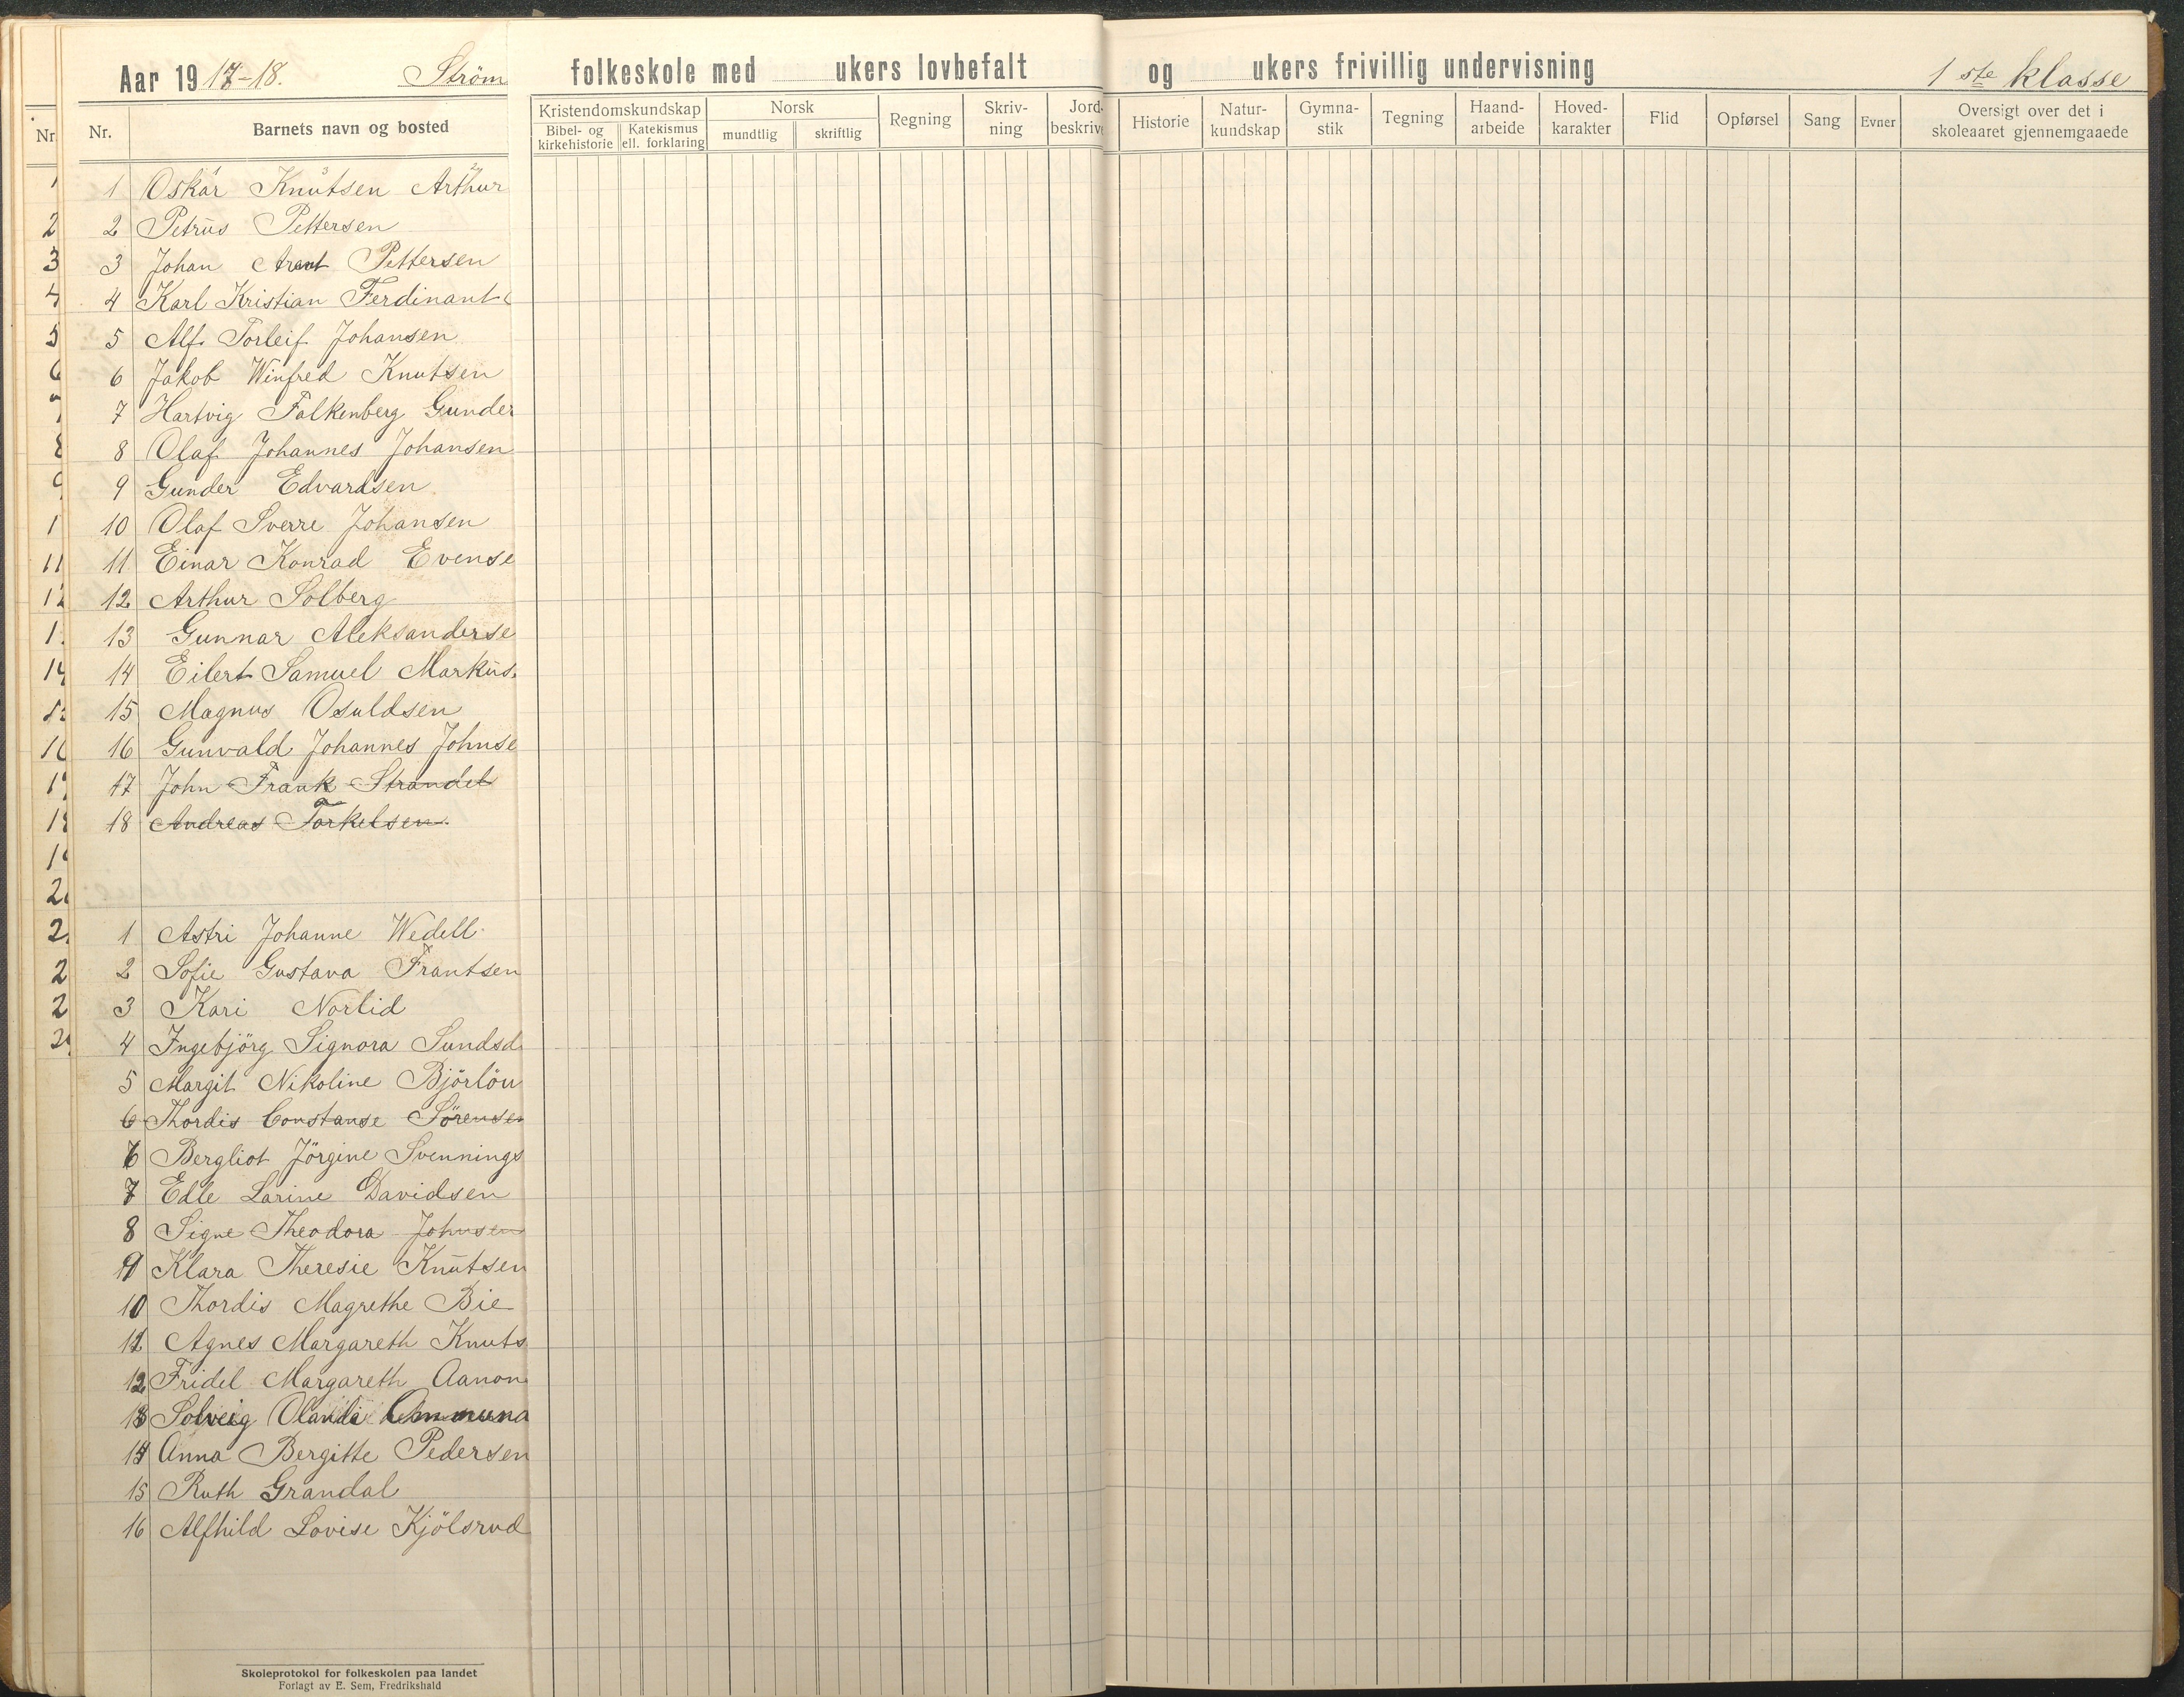 Aar 1917-18. Ström folkeskole med ukers lovbefalt og ukers frivillig undervisning 1ste klasse
Nr. Nr. Barnets navn og bosted Kristendomskundskap Bibel- og kirkehistorie Katekismus ell. forklaring Norsk mundtlig skriftlig Regning Skriv-ning Jord-beskrive Historie Natur-kundskap Gymna-stik Tegning Haand-arbeide Hoved-karakter Flid Opførsel Sang Evner Oversigt over det i skoleaaret gjennemgaaede
1 1 Oskar Knutsen Arthur
2 2 Petrus Pettersen
3 3 Johan Arent Pettersen
4 4 Karl Kristian Ferdinant
5 5 Alf Torleif Johansen
6 6 Jakob Winfred Knutsen
7 7 Hartvig Falkenberg Gunder
8 8 Olaf Johannes Johansen
9 9 Gunder Edvardsen
1 10 Olaf Sverre Johansen
11 11 Einar Konrad Evense
12 12 Arthur Solberg
1 13 Gunnar Aleksanderse
14 14 Eilert Samuel Markus
15 Magnus Osuldsen
16 16 Gunvald Johannes Johnse
17 17 John Frank Strandel
18 18 Andreas Torkelsen
19
2
2 1 Astri Johanne Wedell
2 2 Sofie Gustava Frantsen
2 3 Kari Norlid
24 4 Ingebjörg Signora Sundsd
5 Margit Nikoline Björlöu
6 Thordis Constanse Sörensen
6 Bergliot Jörgine Svennings
7 Edle Larine Davidsen
8 Signe Theodora Johnsen
9 Klara Theresie Knutsen
10 Thordis Magrethe Bie
11 Agnes Margareth Knuts
12 Fridel Margareth Aanon
13 Solveig Olanda
14 Anna Bergitte Pedersen
15 Ruth Grandal
16 Alfhild Lovise Kjölsrud
Skoleprotokol for folkeskolen paa landet
Forlagt av E. Sem, Fredrikshald